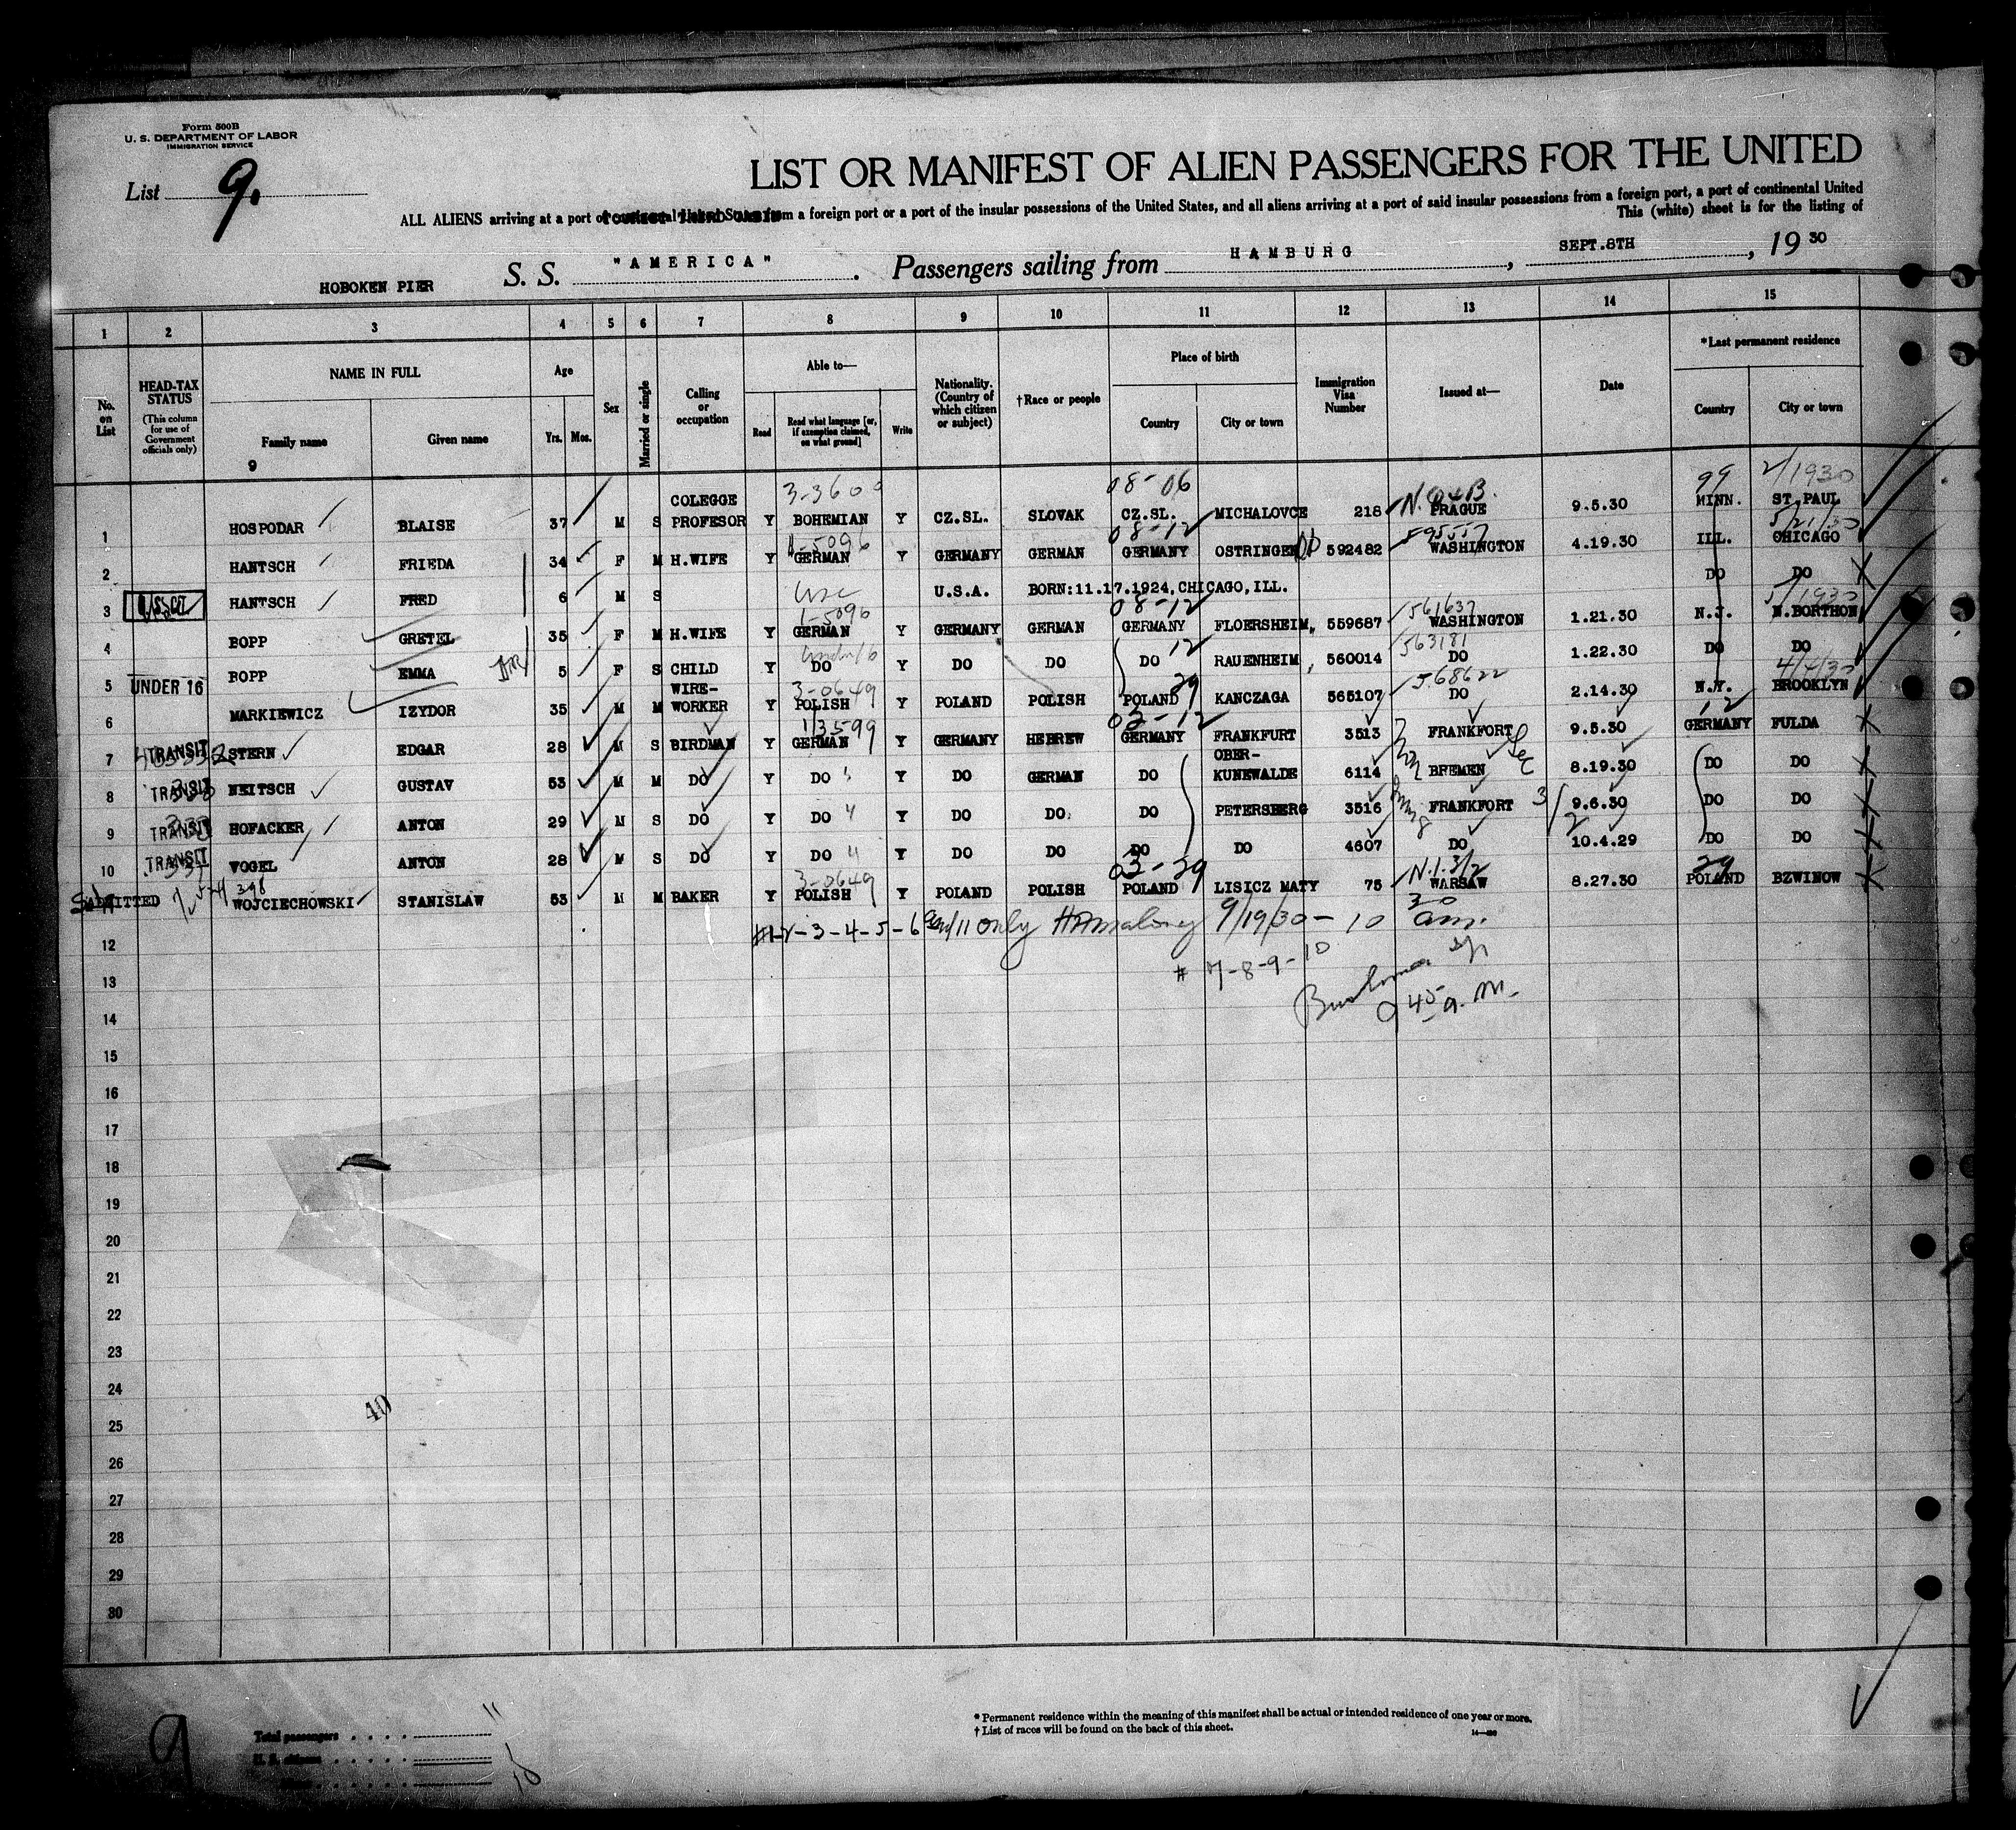 Form 500B
U. S. DEPARTMENT OF LABOR
IMMIGRATION SERVICE
List 9.
LIST OR MANIFEST OF ALIEN PASSENGERS FOR THE UNITED
ALL ALIENS arriving at a port of continental United States from a foreign port or a port of the insular possessions of the United States, and all aliens arriving at a port of said insular possessions from a foreign port, a port of continental United
TOURIST THIRD CABIN
This (white) sheet is for the listing of
HOBOKEN PIER S. S. "AMERICA". Passengers sailing from HAMBURG, SEPT.8TH, 19 30
1 2 3 4 5 6 7 8 9 10 11 12 13 14 15
No. on List
HEAD-TAX STATUS (This column for use of Government officials only)
NAME IN FULL
Family name
Given name
Age
Yrs. Mos.
Sex
Married or single
Calling or occupation
Able to—
Read
Read what language [or, if exemption claimed, on what ground]
Write
Nationality. (Country of which citizen or subject)
†Race or people
Place of birth
Country
City or town
Immigration Visa Number
Issued at—
Date
*Last permanent residence
Country
City or town
9
3-360 08-06 99 2/1930
1 HOSPODAR BLAISE 37 M S COLEGGE PROFESOR Y BOHEMIAN Y CZ.SL. SLOVAK CZ.SL. MICHALOVCE 218 PRAGUE 9.5.30 MINN. ST.PAUL
5096 08-12 59555 5/21/30
2 HANTSCH FRIEDA 34 F M H.WIFE Y GERMAN Y GERMANY GERMAN GERMANY OSTRINGEN 592482 WASHINGTON 4.19.30 ILL. CHICAGO
3 U.S.CIT HANTSCH FRED 6 M S USC U.S.A. BORN:11.17.1924,CHICAGO,ILL. DO DO
1-5096 08-12 561637 5/1930
4 BOPP GRETEL 35 F M H.WIFE Y GERMAN Y GERMANY GERMAN GERMANY FLOERSHEIM, 559687 WASHINGTON 1.21.30 N.J. N.BORTHON
under 16 12 563181
5 UNDER 16 BOPP EMMA 5 F S CHILD Y DO Y DO DO DO RAUENHEIM, 560014 DO 1.22.30 DO DO
3-0649 29 568622 4/4/30
6 MARKIEWICZ IZYDOR 35 M M WIRE-WORKER Y POLISH Y POLAND POLISH POLAND KANCZAGA 565107 DO 2.14.30 N.Y. BROOKLYN
13599 03-12 12
7 TRANSIT STERN EDGAR 28 M S BIRDMAN Y GERMAN Y GERMANY HEBREW GERMANY FRANKFURT 3513 FRANKFORT 9.5.30 GERMANY FULDA
8 TRANSIT NEITSCH GUSTAV 53 M M DO Y DO Y DO GERMAN DO OBER-KUNEWALDE 6114 BREMEN 8.19.30 DO DO
9 TRANSIT HOFACKER ANTON 29 M S DO Y DO Y DO DO DO PETERSBERG 3516 FRANKFORT 9.6.30 DO DO
10 TRANSIT VOGEL ANTON 28 M S DO Y DO Y DO DO DO DO 4607 DO 10.4.29 DO DO
398 3-0649 03-29 N.I.3/2 29
11 ADMITTED WOJCIECHOWSKI STANISLAW 53 M M BAKER Y POLISH Y POLAND POLISH POLAND LISICZ MATY 75 WARSAW 8.27.30 POLAND BZWINOW
#1-2-3-4-5-6 and 11 only 9/19/30 - 10 am.
12
# 7-8-9-10
13
45 a.m.
14
15
16
17
18
19
20
21
22
23
24
40
25
26
27
28
29
30
* Permanent residence within the meaning of this manifest shall be actual or intended residence of one year or more.
† List of races will be found on the back of this sheet.
9
Total passengers 11
U. S. citizens